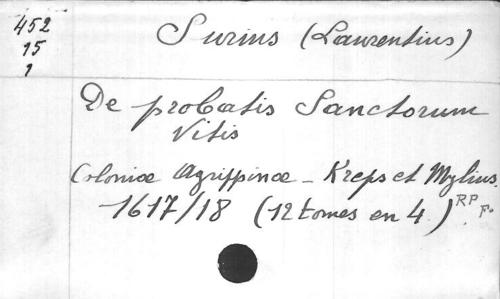 452
15
1
Surius (Laurentius)
De probatis Sanctorum
Vitis
Coloniæ Agrippinæ - Kreps et Mylius.
1617/18 (12 tomes en 4.) RP Fo.